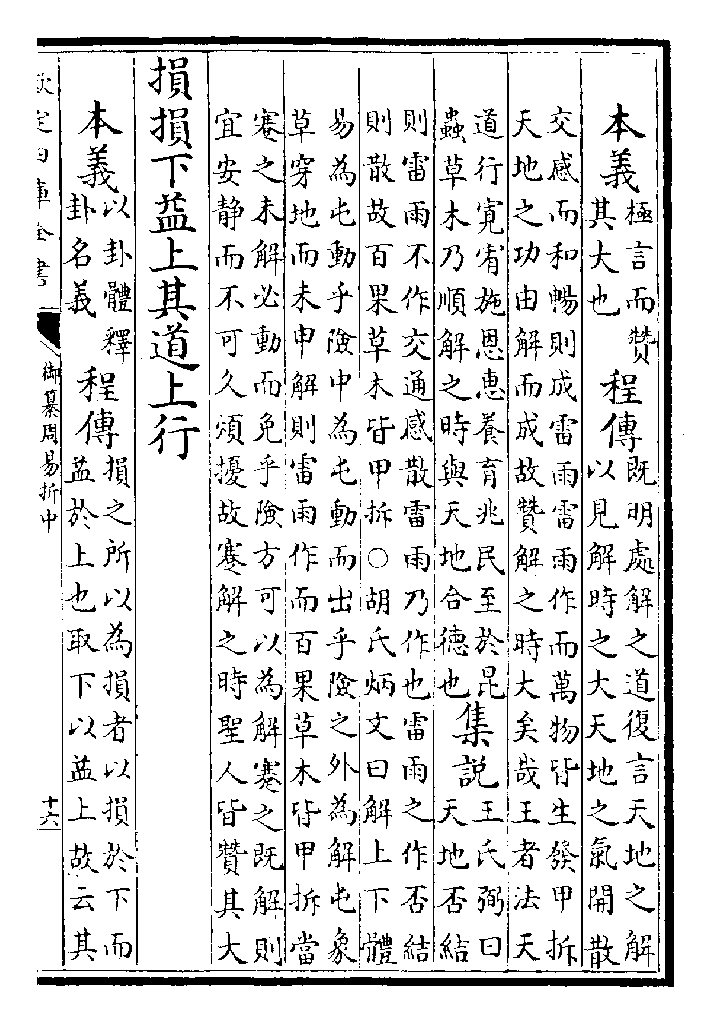 本義極言而贊
其大也
程傳既明處解之道復言天地之解
以見解時之大天地之氣開散
交感而和暢則成雷雨雷雨作而萬物皆生發甲拆
天地之功由解而成故贊解之時大矣哉王者法天
道行寛宥施恩惠養育兆民至於昆
蟲草木乃順解之時與天地合德也
集說王氏弼曰
天地否結
則雷雨不作交通感散雷雨乃作也雷雨之作否結
則散故百果草木皆甲拆○胡氏炳文曰解上下體
易為屯動乎險中為屯動而出乎險之外為解屯象
草穿地而未申解則雷雨作而百果草木皆甲拆當
蹇之未解必動而免乎險方可以為解蹇之既解則
宜安静而不可久煩擾故蹇解之時聖人皆贊其大
損損下益上其道上行
本義以卦體釋
卦名義
程傳損之所以為損者以損於下而
益於上也取下以益上故云其
欽定四庫全書
御纂周易折中
十六